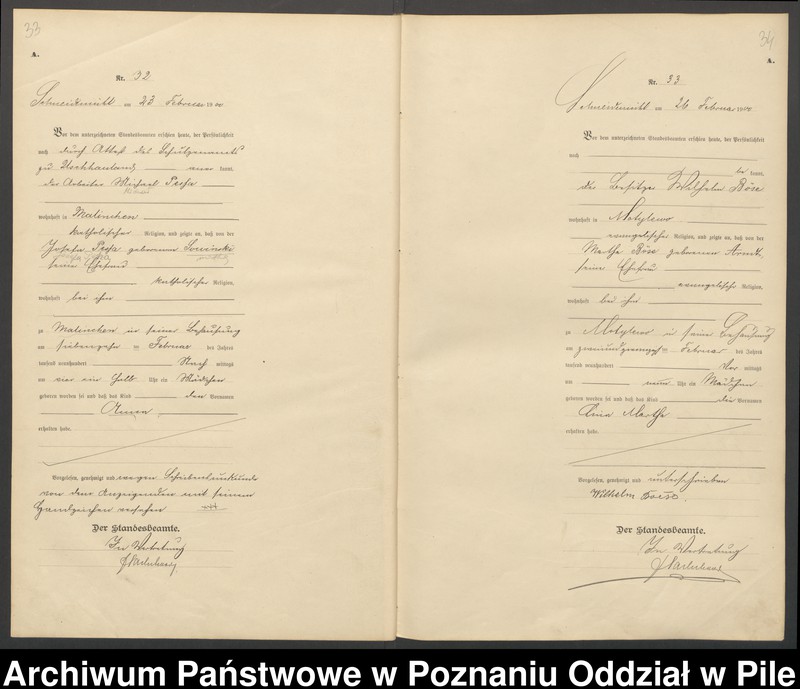 33
A.
Nr. 32
Schneidemühl am 23 Februar 1900
Vor dem unterzeichneten Standesbeamten erschien heute, der Persönlichkeit
nach durch Attest des Schulzenamts
zu Uschhauland aner kannt,
der Arbeiter Michael
wohnhaft in Malinchen
katholischer Religion, und zeigte an, daß von der
geborenen
seine Ehefrau
katholischer Religion,
wohnhaft bei ihm
zu Malinchen in seiner Behausung
am siebenzehn ten Februar des Jahres
tausend neunhundert Nach mittags
um vier ein halb Uhr ein Mädchen
geboren worden sei und daß das Kind den Vornamen
Anna
erhalten habe.
Vorgelesen, genehmigt und wegen Schreibensunkunde
von dem Anzeigenden mit seinem
Handzeichen versehen
Der Standesbeamte.
In Vertretung
34
A.
Nr. 33
Schneidemühl am 26 Februar 1900
Vor dem unterzeichneten Standesbeamten erschien heute, der Persönlichkeit
nach
be kannt,
der Besitzer Wilhelm Böse
wohnhaft in Motylewo
evangelischer Religion, und zeigte an, daß von der
Martha Böse geborenen Arndt,
seine Ehefrau
evangelischer Religion,
wohnhaft bei ihm
zu Motylewo in seiner Behausung
am zweiundzwanzigsten Februar des Jahres
tausend neunhundert Vor mittags
um neun Uhr ein Mädchen
geboren worden sei und daß das Kind die Vornamen
Martha
erhalten habe.
Vorgelesen, genehmigt und unterschrieben
Wilhelm Boese.
Der Standesbeamte.
In Vertretung
Archiwum Państwowe w Poznaniu Oddział w Pile